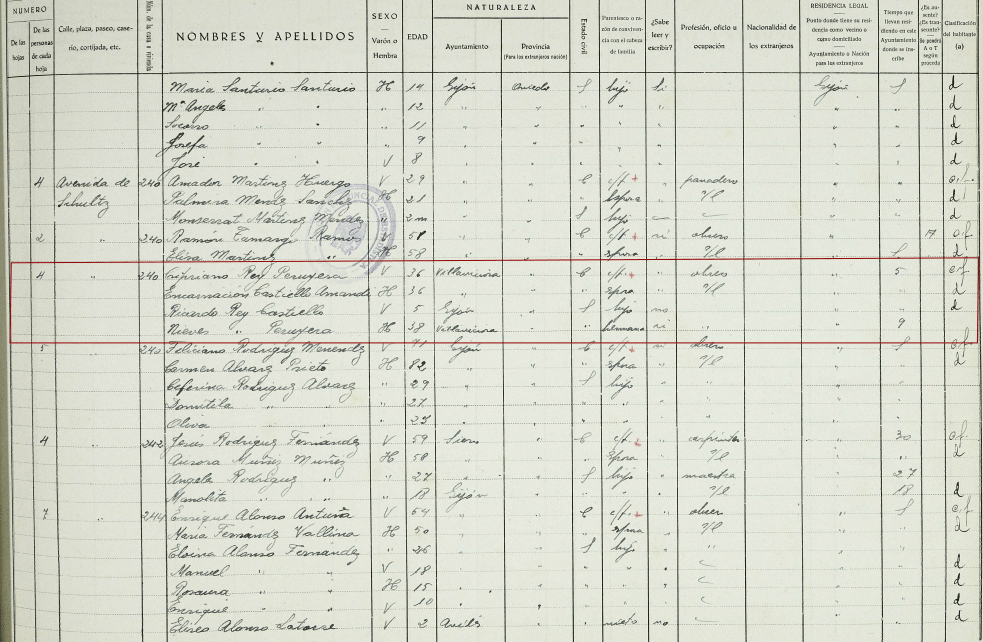 NUMERO
De las hojas
De las personas de cada hoja
Calle, plaza, paseo, caserío, cortijada, etc.
Núm. de la casa o vivienda
NOMBRES Y APELLIDOS
SEXO
Varón o Hembra
EDAD
NATURALEZA
Ayuntamiento
Provincia
(Para los extranjeros nación)
Estado civil
Parentesco o razón de convivencia con el cabeza de familia
¿Sabe leer y escribir?
Profesión, oficio u ocupación
Nacionalidad de los extranjeros
RESIDENCIA LEGAL
Punto donde tiene su residencia como vecino o como domiciliado
Ayuntamiento o Nación para los extranjeros
Tiempo que llevan residiendo en este Ayuntamiento donde se inscribe
¿Es ausente? ¿Es transeunte? Se pondrá A o T según proceda
Clasificación del habitante (a)
Maria Santurio Santurio H 14 Gijón Oviedo S hijo si Gijón S d
Mª Angela " " " 12 " " " " " " d
Socorro " " " 11 " " " " d
Josefa " " " 9 " " " d
José " " V 8 " " " d
4 Avenida de 240 Amador Martinez Huergo V 29 " " C c/f. " panadero " " c.f.
Schultz Palmira Mendez Sanchez H 21 " " " espora " s/l " " d
Monserrat Martinez Mendez " 2 m " " S hijo " " d
2 " 240 Ramón Tamargo Ramos V 51 " " C c/f. ni obrero " 17 c.f.
Elisa Martinez " H 58 " " " espora " s/l " S d
4 " 240 Cipriano Rey Peruyera V 36 Villaviciosa " C c/f. " obrero " 5 c.f.
Encarnación Castiello Amandi H 36 " " " espora " s/l " " d
Ricardo Rey Castiello V 5 Gijón " S hijo no " " d
Nieves " Peruyera H 38 Villaviciosa " " hermana ni " " 9
5 " 240 Feliciano Rodriguez Menendez V 71 Gijón " C c/f. ni obrero " S c.f.
Carmen Alvarez Prieto H 82 " " " espora " s/l " d
Ceferina Rodriguez Alvarez " 29 " " S hijo " "
Domitila " " " 27 " " " "
Oliva 23 " " " "
4 " 242 Jesús Rodriguez Fernández V 59 Siero " C c/f. " carpintero " 30 c.f.
Aurora Muñiz Muñiz H 58 " " " espora " s/l " " d
Angela Rodriguez " " 27 " " S hijo " maestra " 27
Manolita " " " 18 Gijón " " " " s/l " 18 d
7 " 244 Enrique Alonso Antuña V 54 " " C c/f. " obrero " S c.f.
Maria Fernandez Vallina H 50 " " " espora " s/l " " d
Eloina Alonso Fernández " 26 " " S hijo " "
Manuel " " V 18 " " " " " d
Rosaura " " H 15 " " " " " d
Enrique " " V 10 " " " " " d
Eliseo Alonso Latorre " 2 Avilés " " nieto no " " d